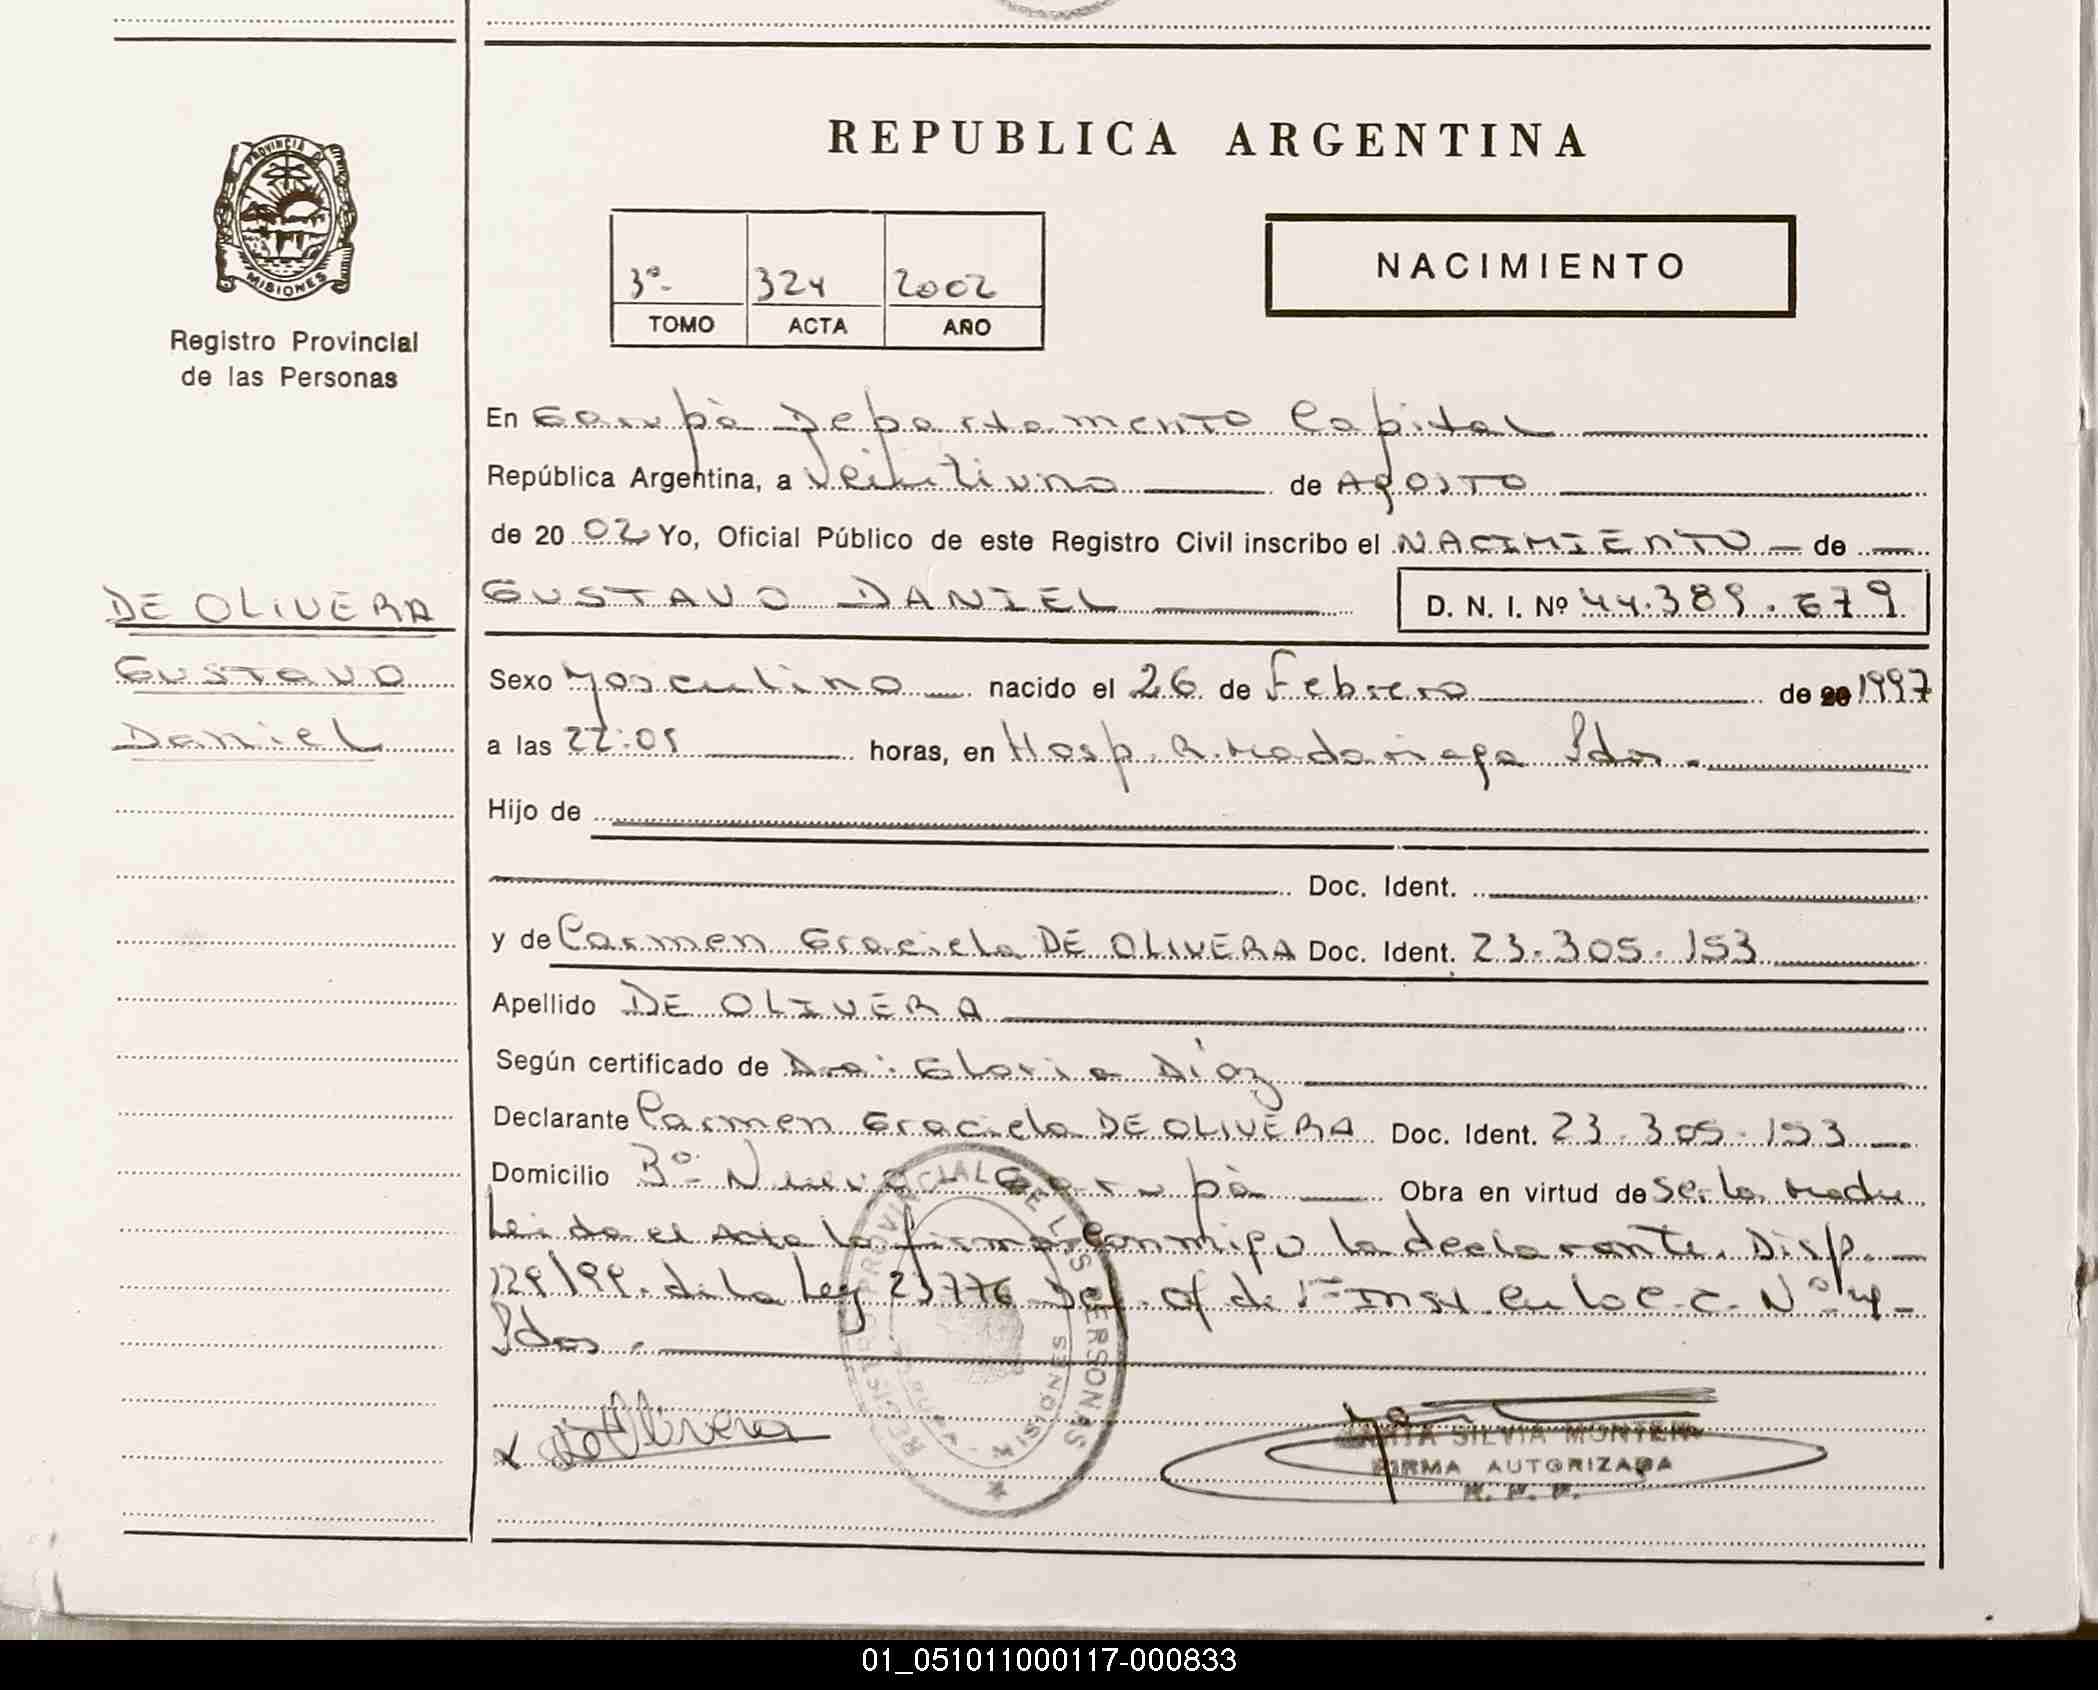 REPUBLICA ARGENTINA
PROVINCIA DE
MISIONES
Registro Provincial
de las Personas
3º- 324 2002
TOMO ACTA AÑO
NACIMIENTO
En Garupà Departamento Capital
República Argentina, a Veintiuno de Agosto
de 20 02 Yo, Oficial Público de este Registro Civil inscribo el NACIMIENTO de
DE OLIVERA
GUSTAVO
Daniel
GUSTAVO DANIEL D. N. I. Nº 44.389.679
Sexo Masculino nacido el 26 de Febrero de 20 1997
a las 22:05 horas, en Hosp. R. Madariaga Pdas.
Hijo de
Doc. Ident.
y de Carmen Graciela DE OLIVERA Doc. Ident. 23.305.153
Apellido DE OLIVERA
Según certificado de Dra. Gloria Díaz
Declarante Carmen Graciela DE OLIVERA Doc. Ident. 23.305.153
Domicilio Bº Nuevo Garupà Obra en virtud de ser la madre
Leida el Acta la firma conmigo la declarante. Disp.
129/99. de la Ley 23776 Def. of de 1º Insc. en la C.C. Nº 4
Pdas.
x de Olivera
REGISTRO PROVINCIAL DE LAS PERSONAS
MISIONES
SILVIA
FIRMA AUTORIZADA
01_051011000117-000833